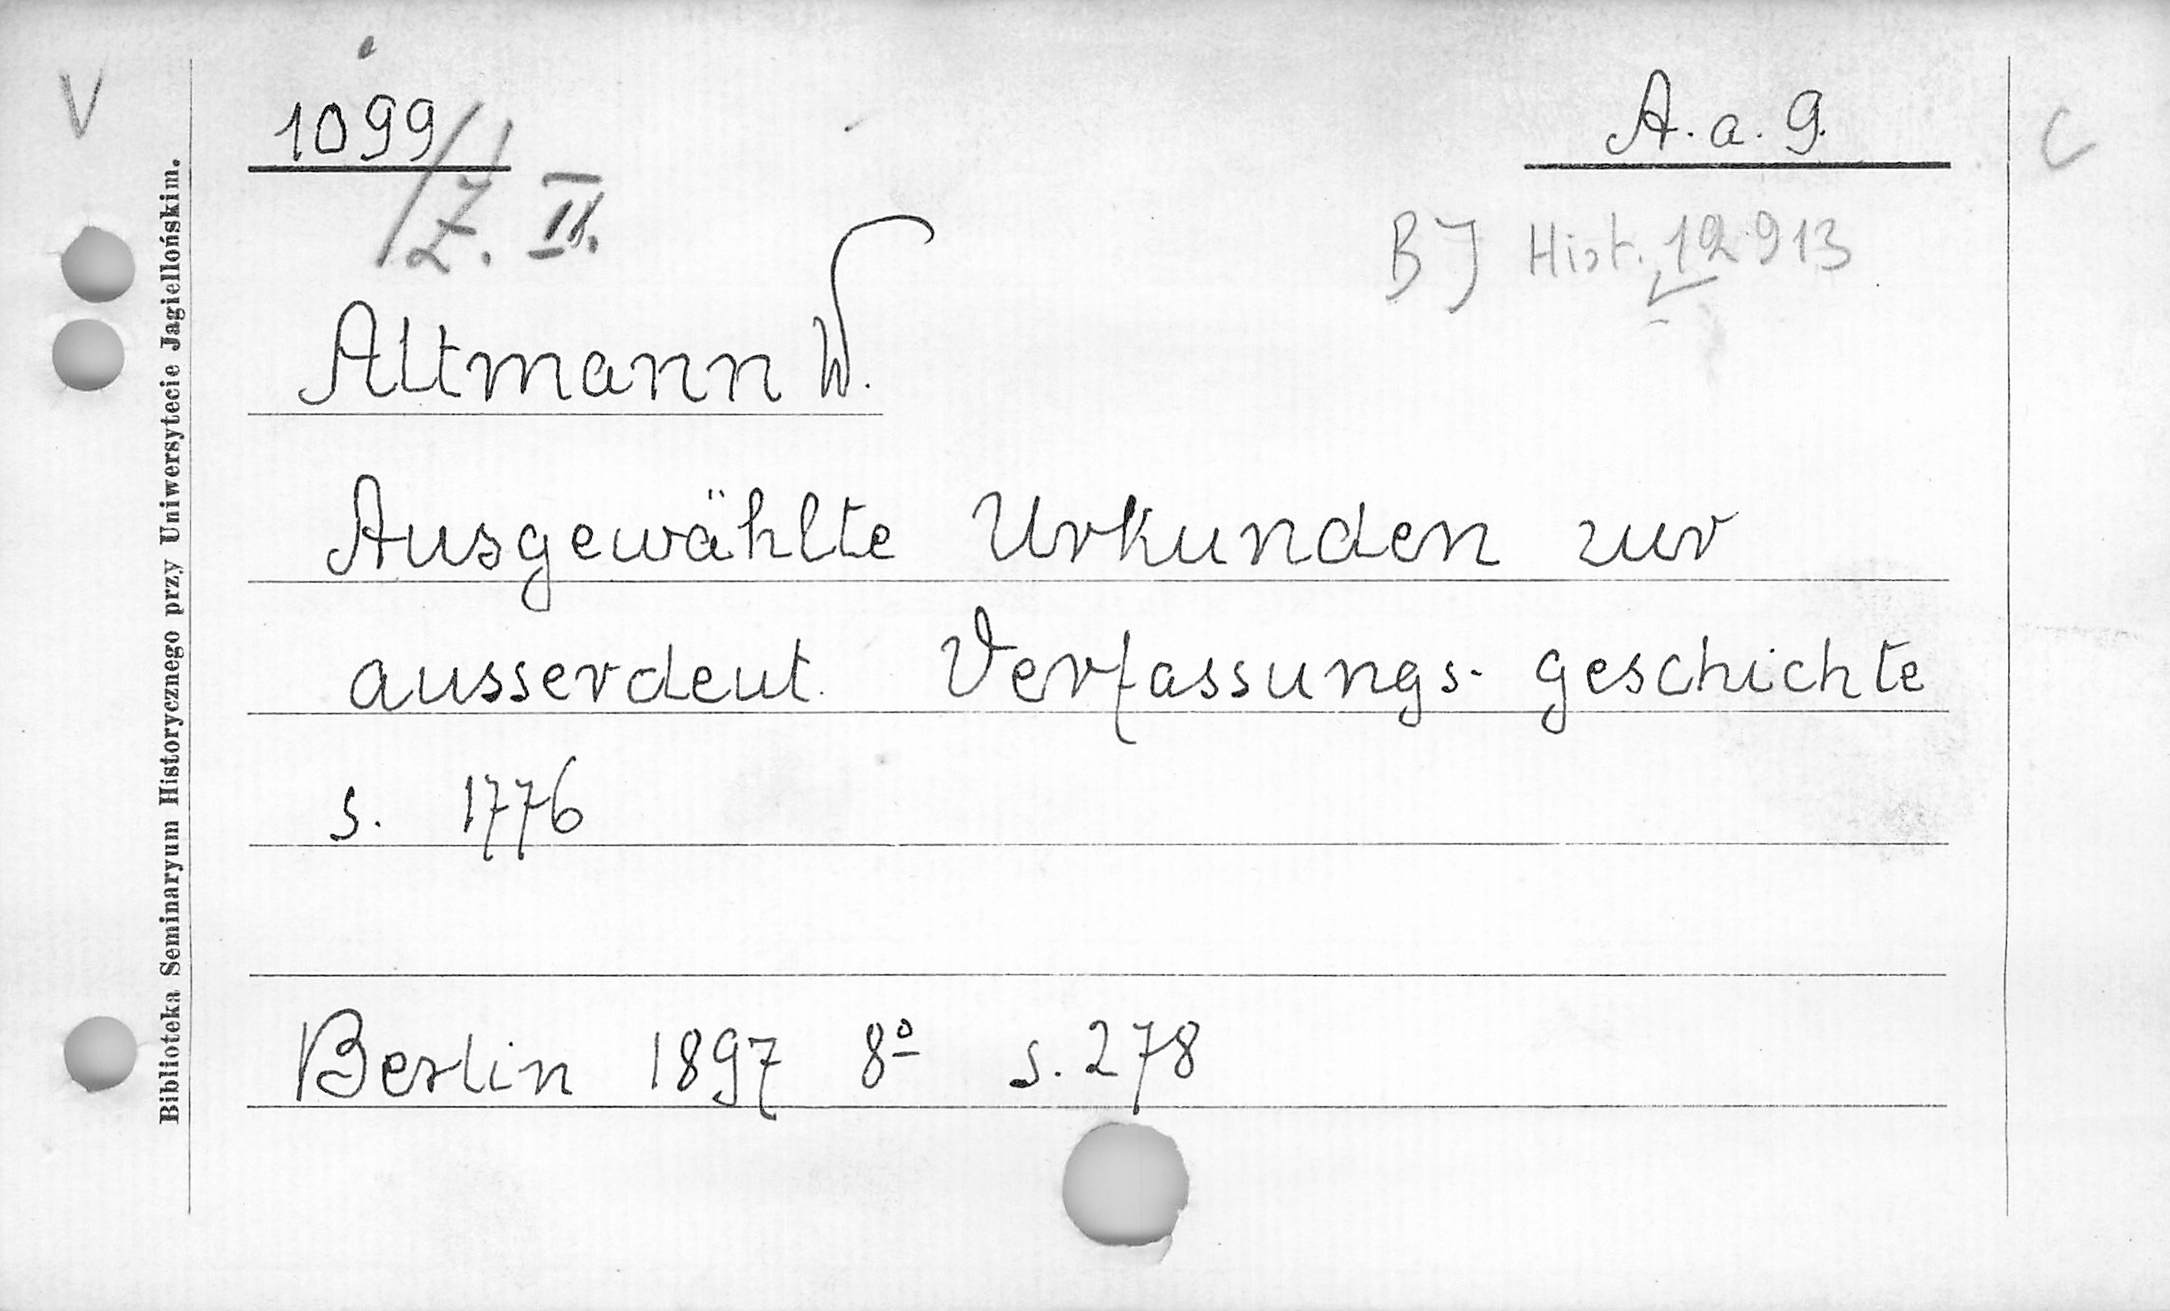 V
1099/Z. II.
A. a. 9.
C
BJ Hist. 12913
Altmann W.
Ausgewählte Urkunden zur
ausserdeut. Verfassungs-geschichte
s. 1776
Berlin 1897 8º s. 278
Biblioteka Seminaryum Historycznego przy Uniwersytecie Jagiellońskim.